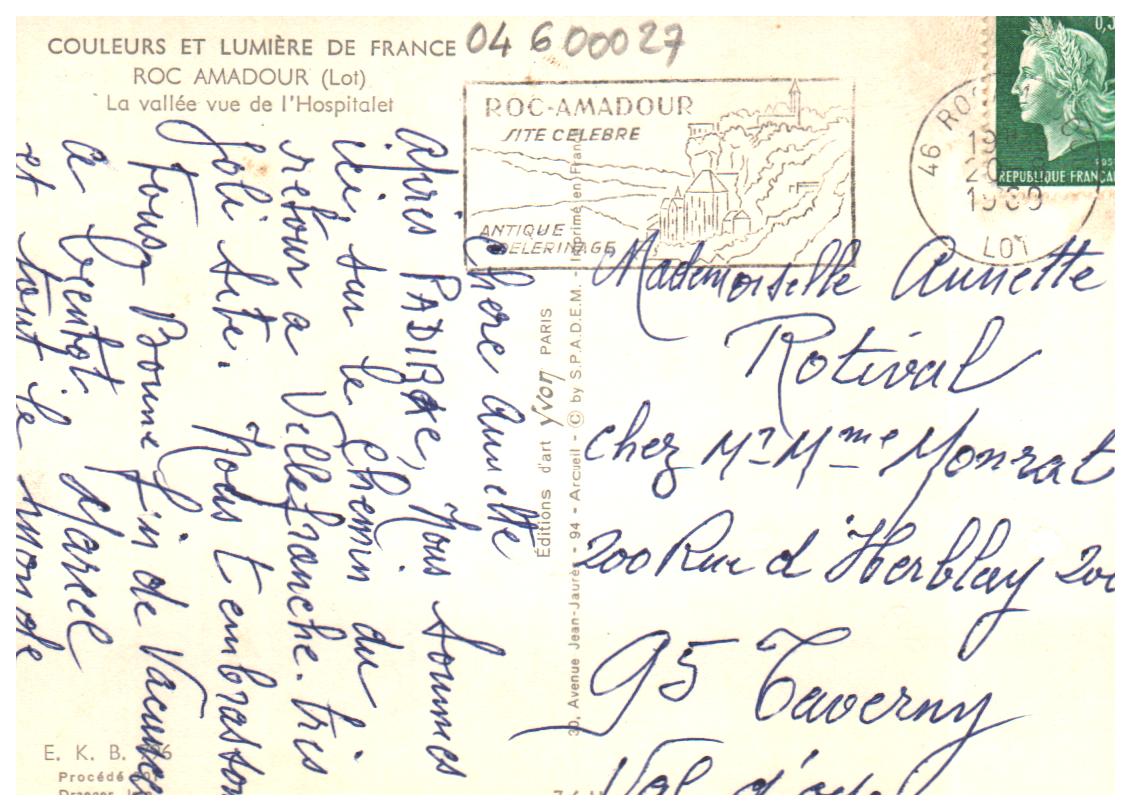 COULEURS ET LUMIÈRE DE FRANCE
ROC AMADOUR (Lot)
La vallée vue de l'Hospitalet
04 600027
ROC-AMADOUR
SITE CELEBRE
ANTIQUE
PELERINAGE
46 ROC
18
20
1969
LOT
0,3
POS
REPUBLIQUE FRANÇA
Chere Annette
Après PADIRAC, Nous sommes
ici, sur le Chemin du
retour a Villefranche. très
joli site. Nous t'embrasson
tous, Bonne fin de Vacances
a bientot Marcel
et tout le monde
Éditions d'art yvon PARIS
30, Avenue Jean-Jaurès - 94 - Arcueil - © by S.P.A.D.E.M. - Imprimé en Fran
Mademoiselle Annette
Rotival
chez Mr Mme Monrat
200 Rue d'Herblay 200
95 Taverny
Val d'oise
E. K. B. 
Procédé
Draeger